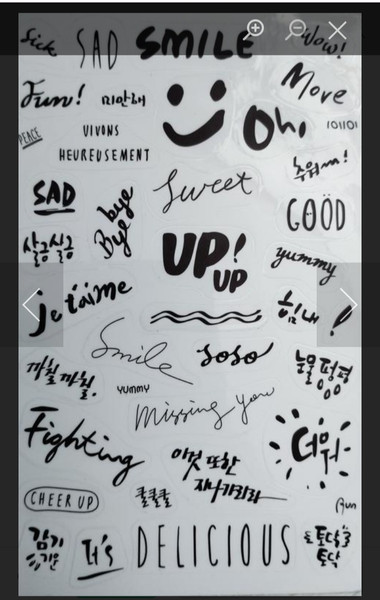 Sick
SAD
SMILE
Wow!
Fun!
미안해
More
PEACE
VIVONS
HEUREUSEMENT
Oh,
101101
추워ㅠㅠ!
SAD
bye
Bye
Sweet
GOOD
살금살금
UP!
UP
yummy
je t'aime
힘!내!
Smile
soso
까칠까칠.
YUMMY
눈물펑펑
Missing you
Fighting
이것 또한
지나가리라
더워
CHEER UP
쿨쿨쿨
감기
It's
DELICIOUS
토닥
토닥